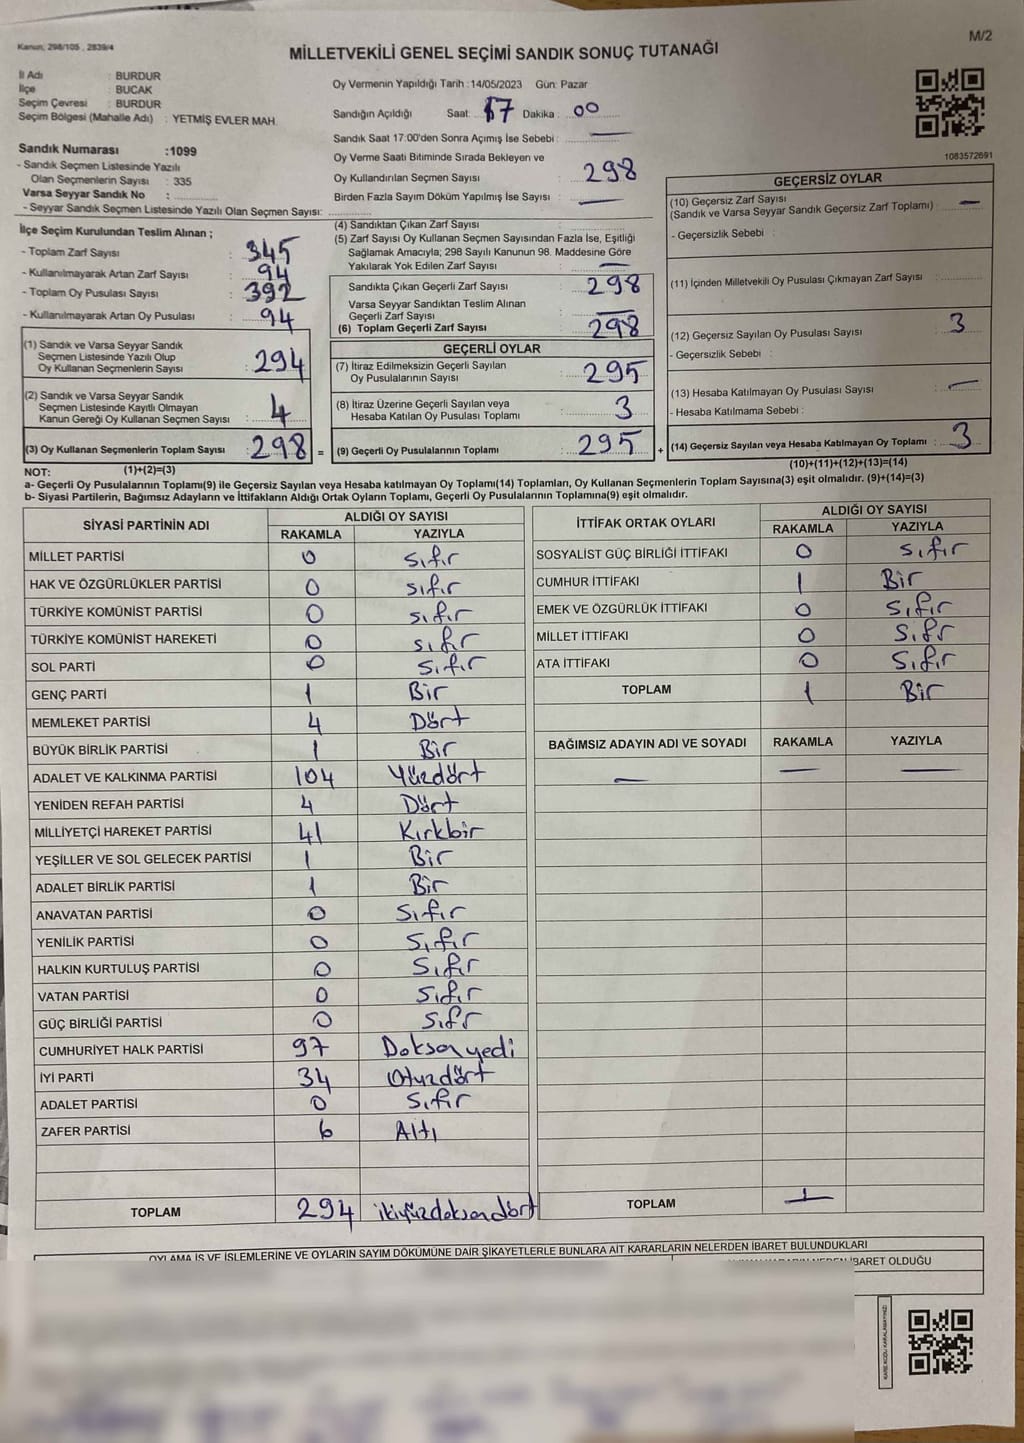 Kanun; 298/105 , 2839/4
M/2
MİLLETVEKİLİ GENEL SEÇİMİ SANDIK SONUÇ TUTANAĞI
İl Adı : BURDUR
İlçe : BUCAK
Seçim Çevresi : BURDUR
Seçim Bölgesi (Mahalle Adı) : YETMİŞ EVLER MAH.
Sandık Numarası :1099
- Sandık Seçmen Listesinde Yazılı
Olan Seçmenlerin Sayısı : 335
Varsa Seyyar Sandık No :
- Seyyar Sandık Seçmen Listesinde Yazılı Olan Seçmen Sayısı:
Oy Vermenin Yapıldığı Tarih :14/05/2023 Gün: Pazar
Sandığın Açıldığı Saat: 17 Dakika : 00
Sandık Saat 17:00'den Sonra Açımış İse Sebebi : —
Oy Verme Saati Bitiminde Sırada Bekleyen ve
Oy Kullandırılan Seçmen Sayısı : 298
Birden Fazla Sayım Döküm Yapılmış İse Sayısı : —
1083572691
İlçe Seçim Kurulundan Teslim Alınan ;
- Toplam Zarf Sayısı : 345
- Kullanılmayarak Artan Zarf Sayısı : 94
- Toplam Oy Pusulası Sayısı : 392
- Kullanılmayarak Artan Oy Pusulası : 94
(1) Sandık ve Varsa Seyyar Sandık
Seçmen Listesinde Yazılı Olup
Oy Kullanan Seçmenlerin Sayısı : 294
(2) Sandık ve Varsa Seyyar Sandık
Seçmen Listesinde Kayıtlı Olmayan
Kanun Gereği Oy Kullanan Seçmen Sayısı : 4
(3) Oy Kullanan Seçmenlerin Toplam Sayısı : 298 =
(4) Sandıktan Çıkan Zarf Sayısı :
(5) Zarf Sayısı Oy Kullanan Seçmen Sayısından Fazla İse, Eşitliği
Sağlamak Amacıyla; 298 Sayılı Kanunun 98. Maddesine Göre
Yakılarak Yok Edilen Zarf Sayısı : —
Sandıkta Çıkan Geçerli Zarf Sayısı : 298
Varsa Seyyar Sandıktan Teslim Alınan
Geçerli Zarf Sayısı : —
(6) Toplam Geçerli Zarf Sayısı : 298
GEÇERLİ OYLAR
(7) İtiraz Edilmeksizin Geçerli Sayılan
Oy Pusulalarının Sayısı : 295
(8) İtiraz Üzerine Geçerli Sayılan veya
Hesaba Katılan Oy Pusulası Toplamı : 3
(9) Geçerli Oy Pusulalarının Toplamı : 295 +
GEÇERSİZ OYLAR
(10) Geçersiz Zarf Sayısı
(Sandık ve Varsa Seyyar Sandık Geçersiz Zarf Toplamı) : —
- Geçersizlik Sebebi :
(11) İçinden Milletvekili Oy Pusulası Çıkmayan Zarf Sayısı :
(12) Geçersiz Sayılan Oy Pusulası Sayısı : 3
- Geçersizlik Sebebi :
(13) Hesaba Katılmayan Oy Pusulası Sayısı : —
- Hesaba Katılmama Sebebi :
(14) Geçersiz Sayılan veya Hesaba Katılmayan Oy Toplamı : 3
NOT: (1)+(2)=(3) (10)+(11)+(12)+(13)=(14)
a- Geçerli Oy Pusulalarının Toplamı(9) ile Geçersiz Sayılan veya Hesaba katılmayan Oy Toplamı(14) Toplamları, Oy Kullanan Seçmenlerin Toplam Sayısına(3) eşit olmalıdır. (9)+(14)=(3)
b- Siyasi Partilerin, Bağımsız Adayların ve İttifakların Aldığı Ortak Oyların Toplamı, Geçerli Oy Pusulalarının Toplamına(9) eşit olmalıdır.
SİYASİ PARTİNİN ADI ALDIĞI OY SAYISI
RAKAMLA YAZIYLA
MİLLET PARTİSİ 0 Sıfır
HAK VE ÖZGÜRLÜKLER PARTİSİ 0 Sıfır
TÜRKİYE KOMÜNİST PARTİSİ 0 Sıfır
TÜRKİYE KOMÜNİST HAREKETİ 0 Sıfır
SOL PARTİ 0 Sıfır
GENÇ PARTİ 1 Bir
MEMLEKET PARTİSİ 4 Dört
BÜYÜK BİRLİK PARTİSİ 1 Bir
ADALET VE KALKINMA PARTİSİ 104 Yüzdört
YENİDEN REFAH PARTİSİ 4 Dört
MİLLİYETÇİ HAREKET PARTİSİ 41 Kırkbir
YEŞİLLER VE SOL GELECEK PARTİSİ 1 Bir
ADALET BİRLİK PARTİSİ 1 Bir
ANAVATAN PARTİSİ 0 Sıfır
YENİLİK PARTİSİ 0 Sıfır
HALKIN KURTULUŞ PARTİSİ 0 Sıfır
VATAN PARTİSİ 0 Sıfır
GÜÇ BİRLİĞİ PARTİSİ 0 Sıfr
CUMHURİYET HALK PARTİSİ 97 Doksanyedi
İYİ PARTİ 34 Otuzdört
ADALET PARTİSİ 0 Sıfır
ZAFER PARTİSİ 6 Altı
TOPLAM 294 ikiyüzdoksandört
İTTİFAK ORTAK OYLARI ALDIĞI OY SAYISI
RAKAMLA YAZIYLA
SOSYALİST GÜÇ BİRLİĞİ İTTİFAKI 0 Sıfır
CUMHUR İTTİFAKI 1 Bir
EMEK VE ÖZGÜRLÜK İTTİFAKI 0 Sıfır
MİLLET İTTİFAKI 0 Sıfr
ATA İTTİFAKI 0 Sıfır
TOPLAM 1 Bir
BAĞIMSIZ ADAYIN ADI VE SOYADI RAKAMLA YAZIYLA
— — —
TOPLAM 1
OYLAMA İŞ VE İŞLEMLERİNE VE OYLARIN SAYIM DÖKÜMÜNE DAİR ŞİKAYETLERLE BUNLARA AİT KARARLARIN NELERDEN İBARET BULUNDUKLARI
İBARET OLDUĞU
KARE KODU KARALAMAYINIZ!